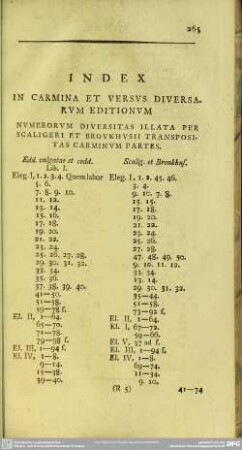 265
INDEX
IN CARMINA ET VERSVS DIVERSA-
RVM EDITIONVM
NVMERORVM DIVERSITAS ILLATA PER
SCALIGERI ET BROVKHVSII TRANSPOSI-
TAS CARMINVM PARTES.
Edd. vulgatae et codd. Scalig. et Broukhus.
Lib. I.
Eleg. I, 1. 2. 3. 4. Quem labor Eleg. I, 1. 2. 45. 46.
5. 6. 3. 4.
7. 8. 9. 10. 9. 10. 7. 8.
11. 12. 15. 15.
13. 14. 17. 18.
15. 16. 19. 20.
17. 18. 21. 22.
19. 20. 23. 24.
21. 22. 25. 26.
23. 24. 27. 28.
25. 26. 27. 28. 47. 48. 49. 50.
29. 30. 31. 32. 9. 10. 11. 12.
33. 34. 33. 34.
35. 36. 13. 14.
37. 38. 39. 40. 29. 30. 31. 32.
41—50. 35—44.
51—58. 51—58.
59—78 f. 73—92 f.
El. II, 1—64. El. II, 1—64.
65—70. El. I, 67—72.
71—78. 59—66.
79—98 f. El. V, 37 ad f.
El. III, 1—94 f. El. III, 1—94 f.
El. IV, 1—8. El. IV, 1—8.
9—14. 69—74.
15—38. 11—34.
39—40. 9. 10.
(R 5) 41—74